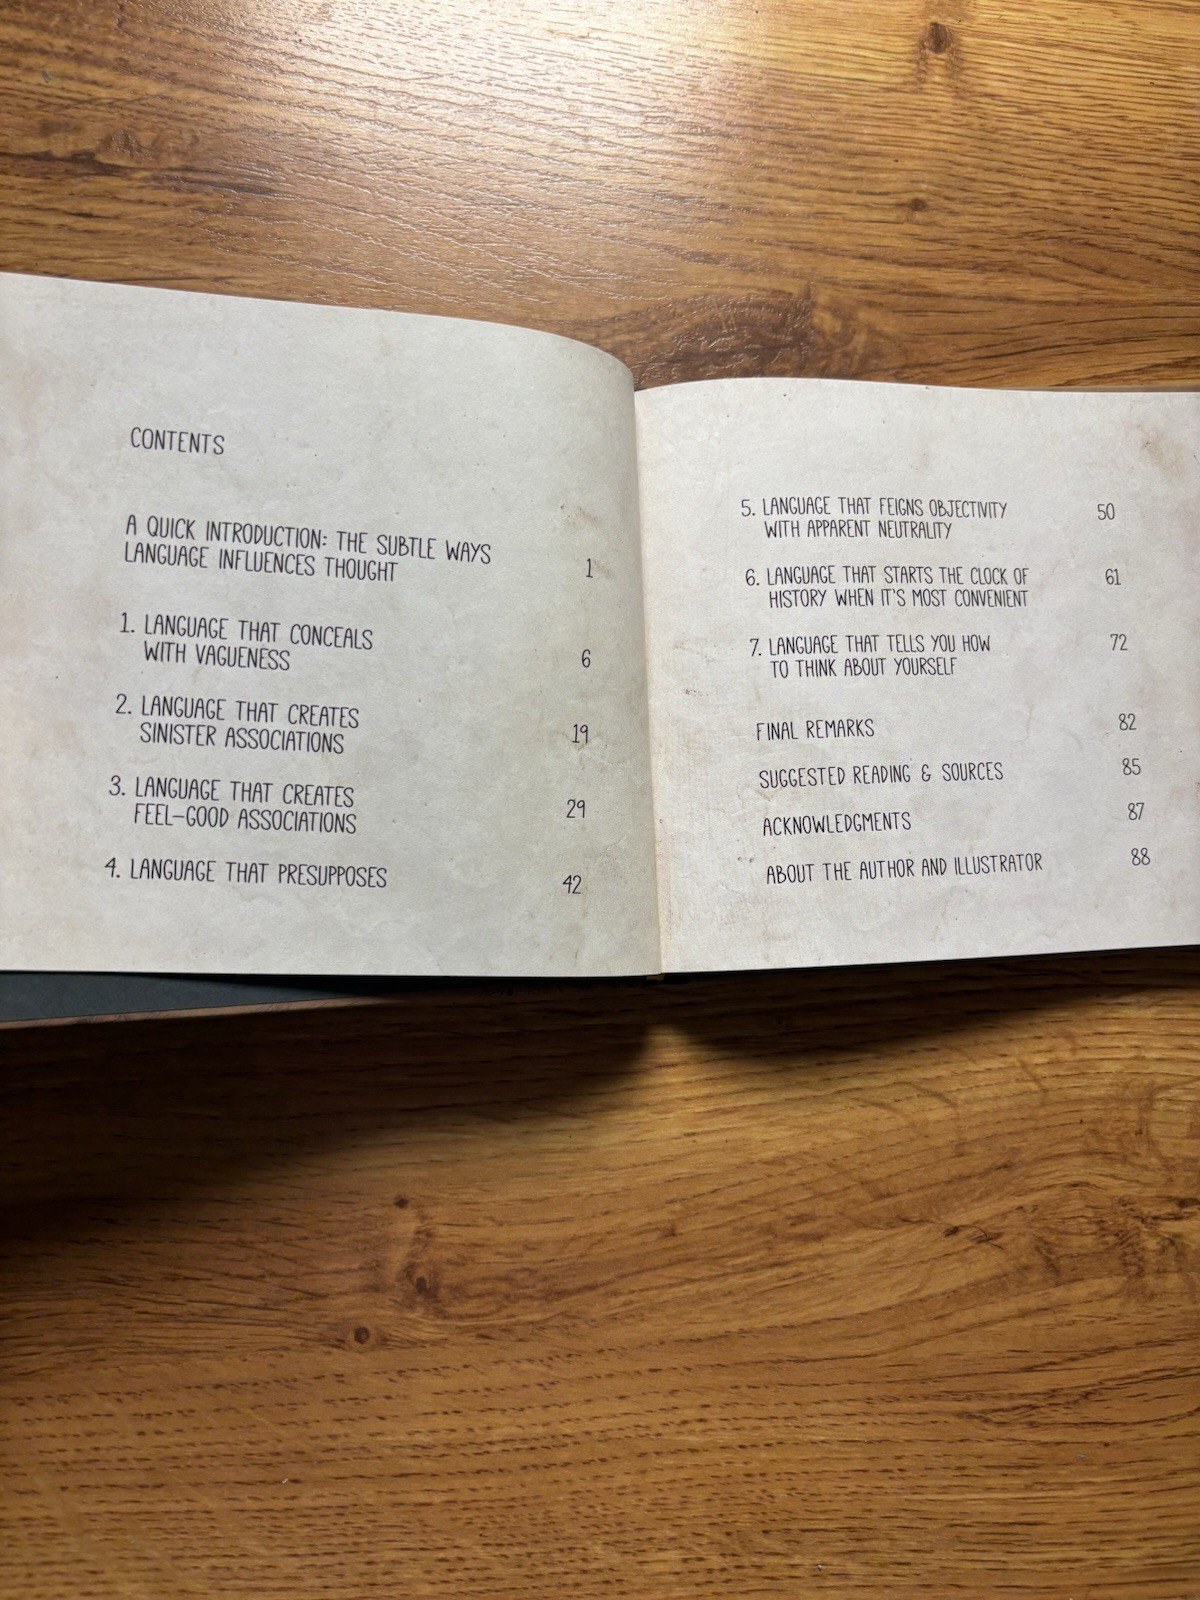 CONTENTS
A QUICK INTRODUCTION: THE SUBTLE WAYS
LANGUAGE INFLUENCES THOUGHT 1
1. LANGUAGE THAT CONCEALS
WITH VAGUENESS 6
2. LANGUAGE THAT CREATES
SINISTER ASSOCIATIONS 19
3. LANGUAGE THAT CREATES
FEEL-GOOD ASSOCIATIONS 29
4. LANGUAGE THAT PRESUPPOSES 42
5. LANGUAGE THAT FEIGNS OBJECTIVITY 50
WITH APPARENT NEUTRALITY
6. LANGUAGE THAT STARTS THE CLOCK OF 61
HISTORY WHEN IT'S MOST CONVENIENT
7. LANGUAGE THAT TELLS YOU HOW 72
TO THINK ABOUT YOURSELF
FINAL REMARKS 82
SUGGESTED READING & SOURCES 85
ACKNOWLEDGMENTS 87
ABOUT THE AUTHOR AND ILLUSTRATOR 88